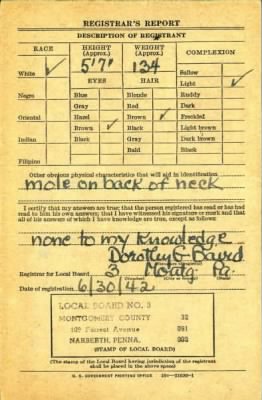 REGISTRAR'S REPORT
DESCRIPTION OF REGISTRANT
RACE HEIGHT (Approx.) WEIGHT (Approx.) COMPLEXION
White ✓ 5'7" 134 Sallow
EYES HAIR Light ✓
Negro Blue Blonde Ruddy
Gray Red Dark
Oriental Hazel Brown ✓ Freckled
Brown ✓ Black Light brown
Indian Black Gray Dark brown
Bald Black
Filipino
Other obvious physical characteristics that will aid in identification
mole on back of neck
I certify that my answers are true; that the person registered has read or has
had read to him his own answers; that I have witnessed his signature or mark and that
all of his answers of which I have knowledge are true, except as follows:
none to my knowledge
Dorothy G Baird
Registrar for Local Board 3 Montg Pa.
Date of registration 6/30/42
LOCAL BOARD NO. 3
MONTGOMERY COUNTY 32
109 Forrest Avenue 091
NARBERTH, PENNA. 003
(STAMP OF LOCAL BOARD)
(The stamp of the Local Board having jurisdiction of the registrant
shall be placed in the above space.)
U. S. GOVERNMENT PRINTING OFFICE